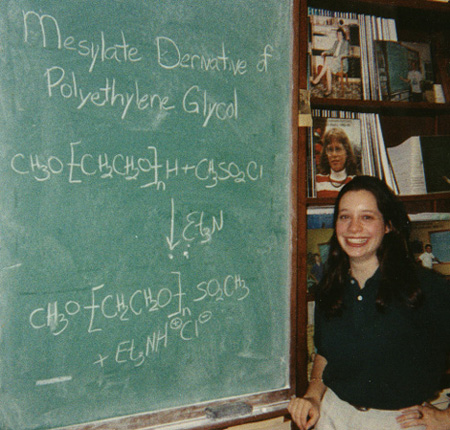 Mesylate Derivative of
Polyethylene Glycol
CH3O[CH2CH2O]nH + CH3SO2Cl
↓ Et3N
CH3O[CH2CH2O]nSO2CH3
+ Et3NH⊕Cl⊖